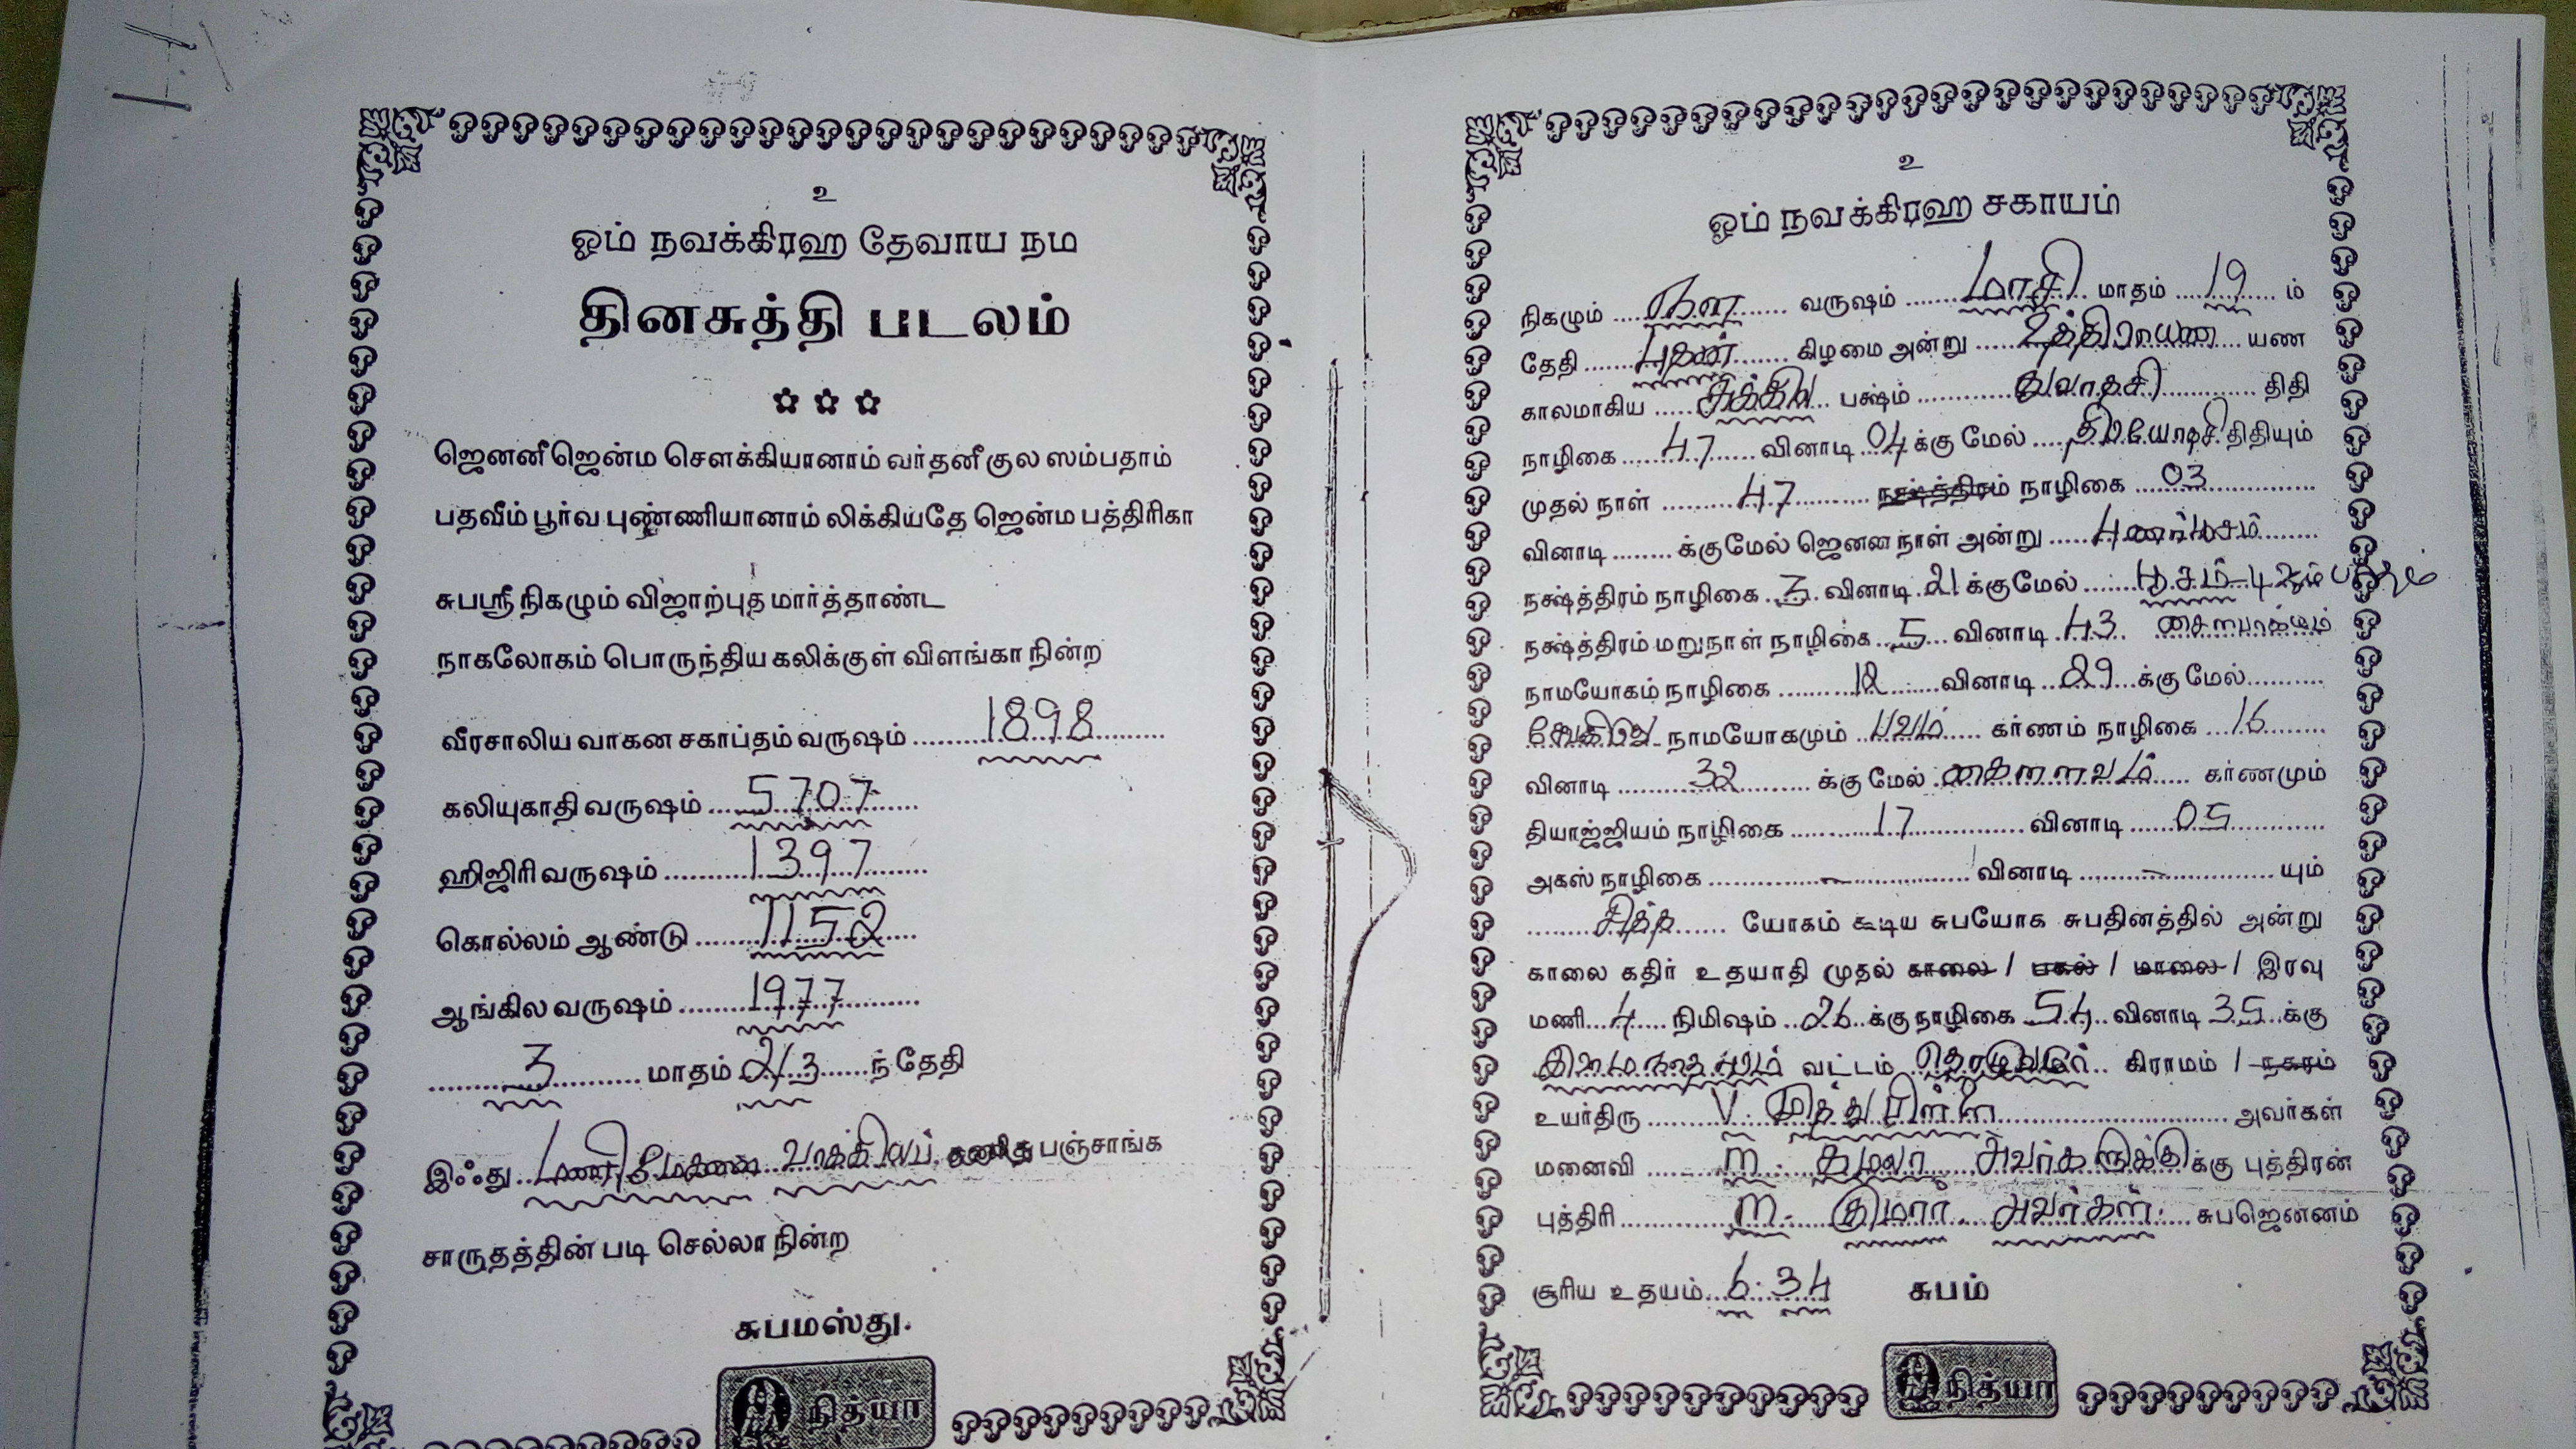 உ
ஓம் நவக்கிரஹ தேவாய நம
தினசுத்தி படலம்
ஜெனனீ ஜென்ம சௌக்கியானாம் வர்தனீ குல ஸம்பதாம்
பதவீம் பூர்வ புண்ணியானாம் லிக்கியதே ஜென்ம பத்திரிகா
சுபஸ்ரீ நிகழும் விஜாற்புத மார்த்தாண்ட
நாகலோகம் பொருந்திய கலிக்குள் விளங்கா நின்ற
வீரசாலிய வாகன சகாப்தம் வருஷம் 1898
கலியுகாதி வருஷம் 5707
ஹிஜிரி வருஷம் 1397
கொல்லம் ஆண்டு 1152
ஆங்கில வருஷம் 1977
3 மாதம் 2/3 ந் தேதி
இஃது மணிமேகலை வாக்கியப் பஞ்சாங்க
சாருதத்தின் படி செல்லா நின்ற
சுபமஸ்து.
நித்யா
உ
ஓம் நவக்கிரஹ சகாயம்
நிகழும் நள வருஷம் மாசி மாதம் 19 ம்
தேதி புதன் கிழமை அன்று உத்திராயண யண
காலமாகிய சுக்கில பக்ஷம் துவாதசி திதி
நாழிகை 47 வினாடி 04 க்கு மேல் திரயோதசி திதியும்
முதல் நாள் 47 நக்ஷத்திரம் நாழிகை 03
வினாடி க்குமேல் ஜெனன நாள் அன்று புனர்பூசம்
நக்ஷ்த்திரம் நாழிகை 3 வினாடி 21 க்குமேல் பூசம் 4ஆம் பாதம்
நக்ஷ்த்திரம் மறுநாள் நாழிகை 5 வினாடி 43 சௌபாக்யம்
நாமயோகம் நாழிகை 12 வினாடி 29 க்கு மேல்
நாமயோகமும் பவம் கர்ணம் நாழிகை 16
வினாடி 32 க்கு மேல் கௌலவம் கர்ணமும்
தியாஜ்ஜியம் நாழிகை 17 வினாடி 05
அகஸ் நாழிகை - வினாடி - யும்
சித்த யோகம் கூடிய சுபயோக சுபதினத்தில் அன்று
காலை கதிர் உதயாதி முதல் காலை / பகல் / மாலை / இரவு
மணி 4 நிமிஷம் 26 க்கு நாழிகை 54 வினாடி 35 க்கு
வட்டம் கிராமம் / நகரம்
உயர்திரு V. முத்துபிள்ளை அவர்கள்
மனைவி m. கமலா அவர்களுக்கு க்கு புத்திரன்
புத்திரி m. குமார் அவர்கள் சுபஜெனனம்
சூரிய உதயம் 6.34 சுபம்
நித்யா